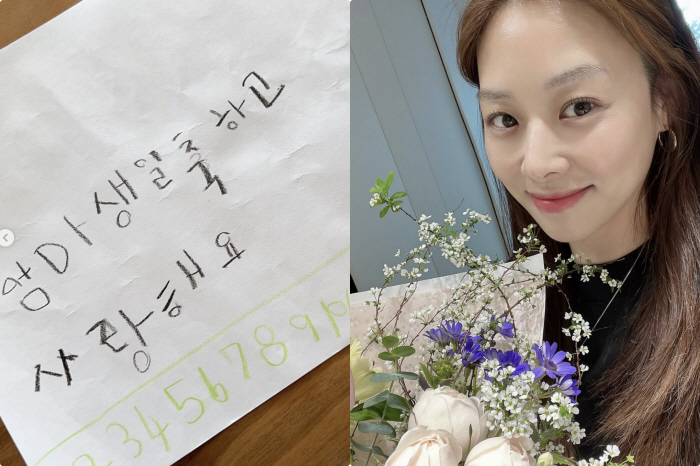 엄마 생일 축하고
사랑해요
2345678910